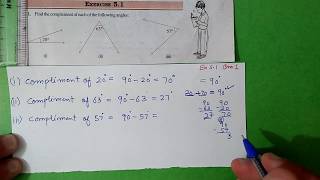 EXERCISE 5.1
1. Find the complement of each of the following angles:
20°
63°
57°
(i) (ii) (iii)
(i) Compliment of 20° = 90° - 20° = 70°
(ii) Compliment of 63° = 90° - 63 = 27°
(iii) Compliment of 57° = 90° - 57° =
Ex 5.1
= 90°
20 + 70 = 90°
90 90
- 63 - 20
27 70
90
- 57
3